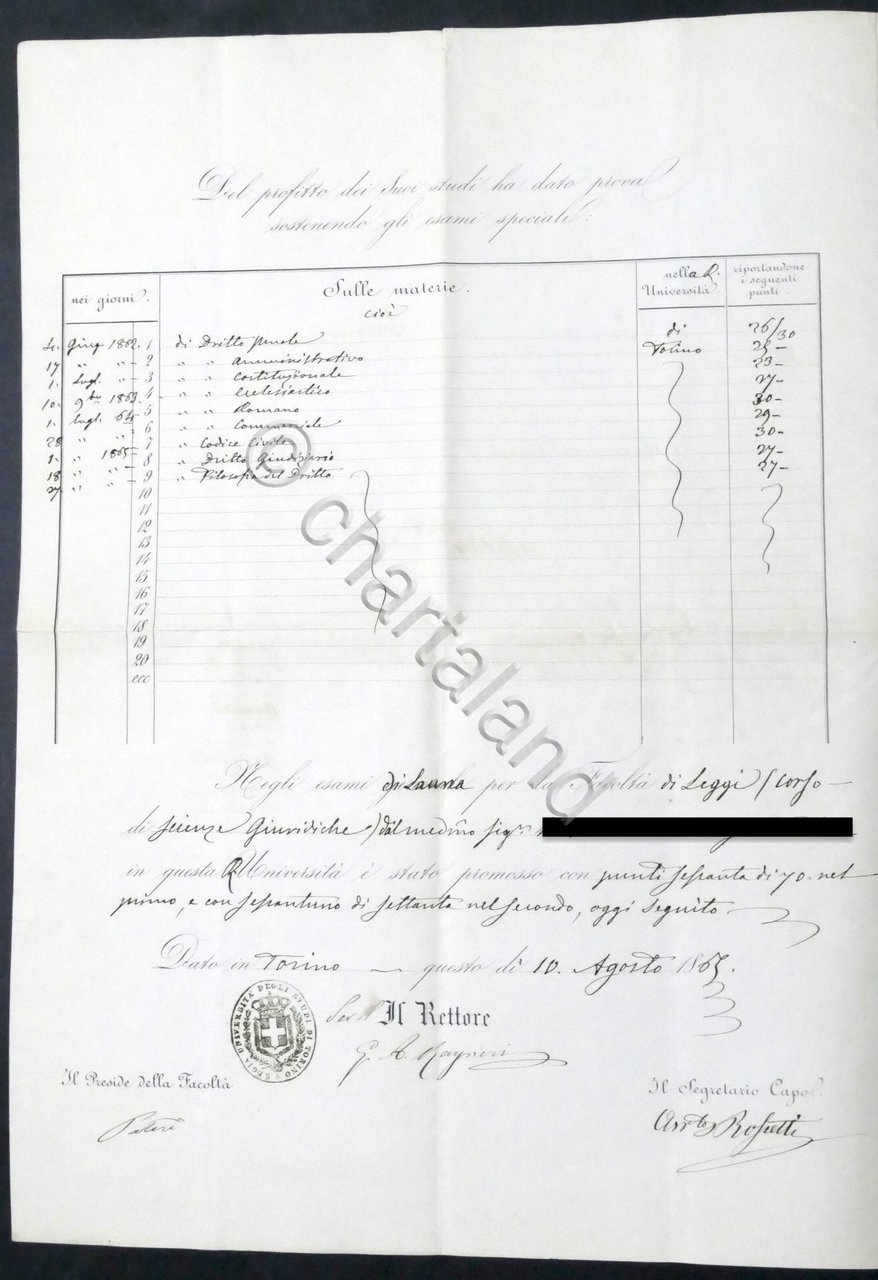 Del profitto dei Suoi studi ha dato prova
sostenendo gli esami speciali:
nei giorni. Sulle materie. nella R. Università. riportandone i seguenti punti.
cioè
Giug 1862. 1 di Dritto Penale di 26/30
17 " " - 2 " " Amministrativo Torino 25-
1. Lugl. " - 3 " " Costituzionale 23-
10. 9bre 1863. 4 " " Eclesiastico 27-
1. Lugl. 64. 5 " " Romano 30-
28 " " 6 " " Commerciale 29-
1. " 1865 - 7 " Codice Civile 30-
18 " " - 8 " Dritto Giudiziario 27-
27 " " - 9 " Filosofia del Dritto 27-
10
11
12
13
14
15
16
17
18
19
20
ecc
© chartaland
Negli esami di Laurea per la Facoltà di Leggi (Corso
di scienze Giuridiche) dal medmo sigr
in questa R Università è stato promosso con punti sessanta di 70. nel
primo, e con sessantuno di settanta nel secondo, oggi seguito
Dato in Torino questo dì 10. Agosto 1865.
Il Rettore
G. A. Rayneri
REGIA UNIVERSITÀ DEGLI STUDI DI TORINO
Il Preside della Facoltà
Il Segretario Capo.
Rossetti